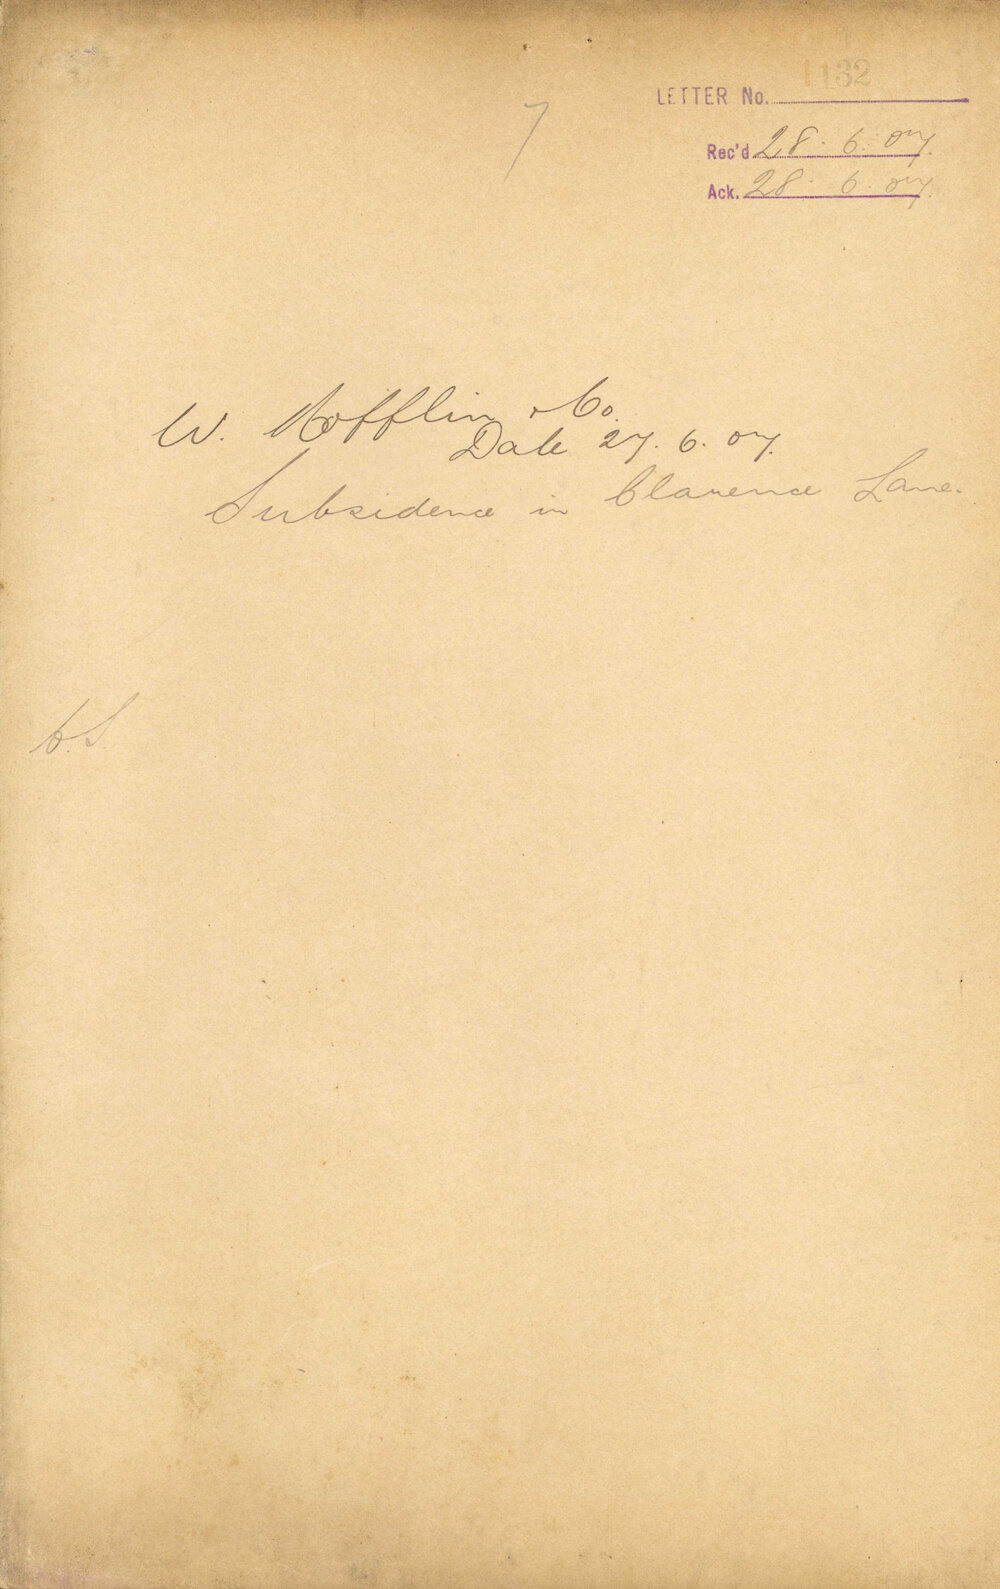 LETTER No. 1132
7
Rec'd 28. 6. 07.
Ack. 28. 6. 07.
W. & Co.
Date 27. 6. 07.
Subsidence in Clarence Lane.